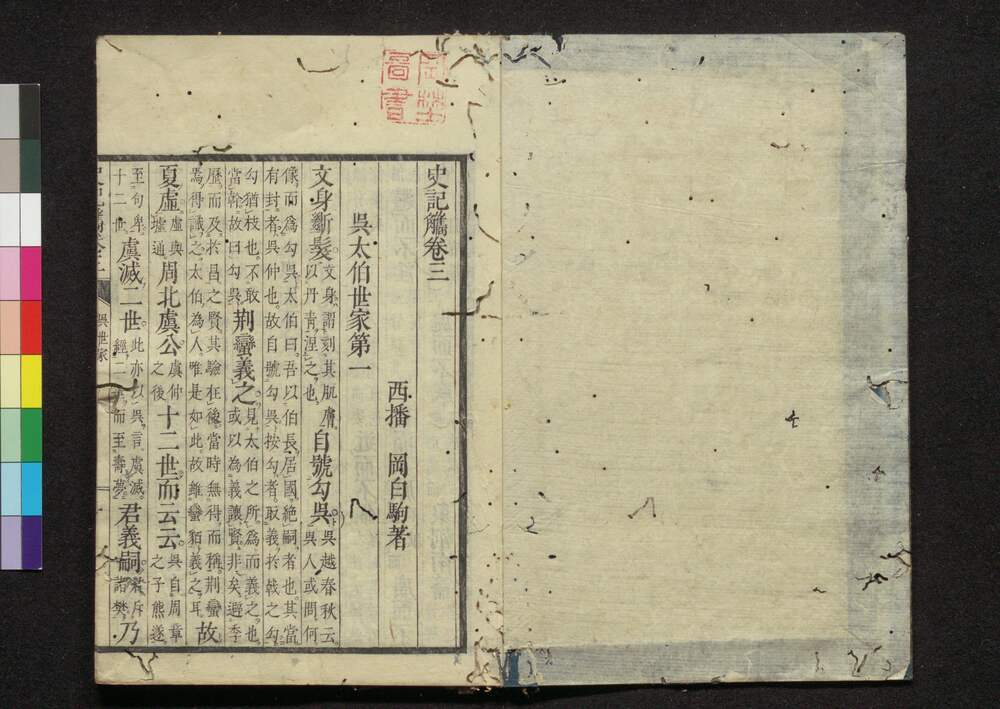 岡埜
圖書
史記觿卷三
西播 岡白駒著
吳太伯世家第一
文身斷髮 文身謂刻其肌膚以丹青涅之也 自號勾吳 吳越春秋云吳人或問何
像而爲勾吳太伯曰吾以伯長居國絕嗣者也其當有封者吳仲也故自號勾吳按勾者取義於戟之勾
勾猶枝也不敢當幹故曰勾吳 荆蠻義之 見太伯之所爲而義之也或以為義讓賢非矣遯季
歷而及於昌之賢其驗在後當時無得而稱荆蠻焉得識之太伯為人唯是如此故雖蠻貊義之耳 故
夏虛 虛與墟通 周北虞公 虞仲之後 十二世而云云 吳自周章之子熊遂
至句卑十二世 虞滅二世 此亦以吳言虞滅經二世而至壽夢 君義嗣 諸樊 乃
吳世家